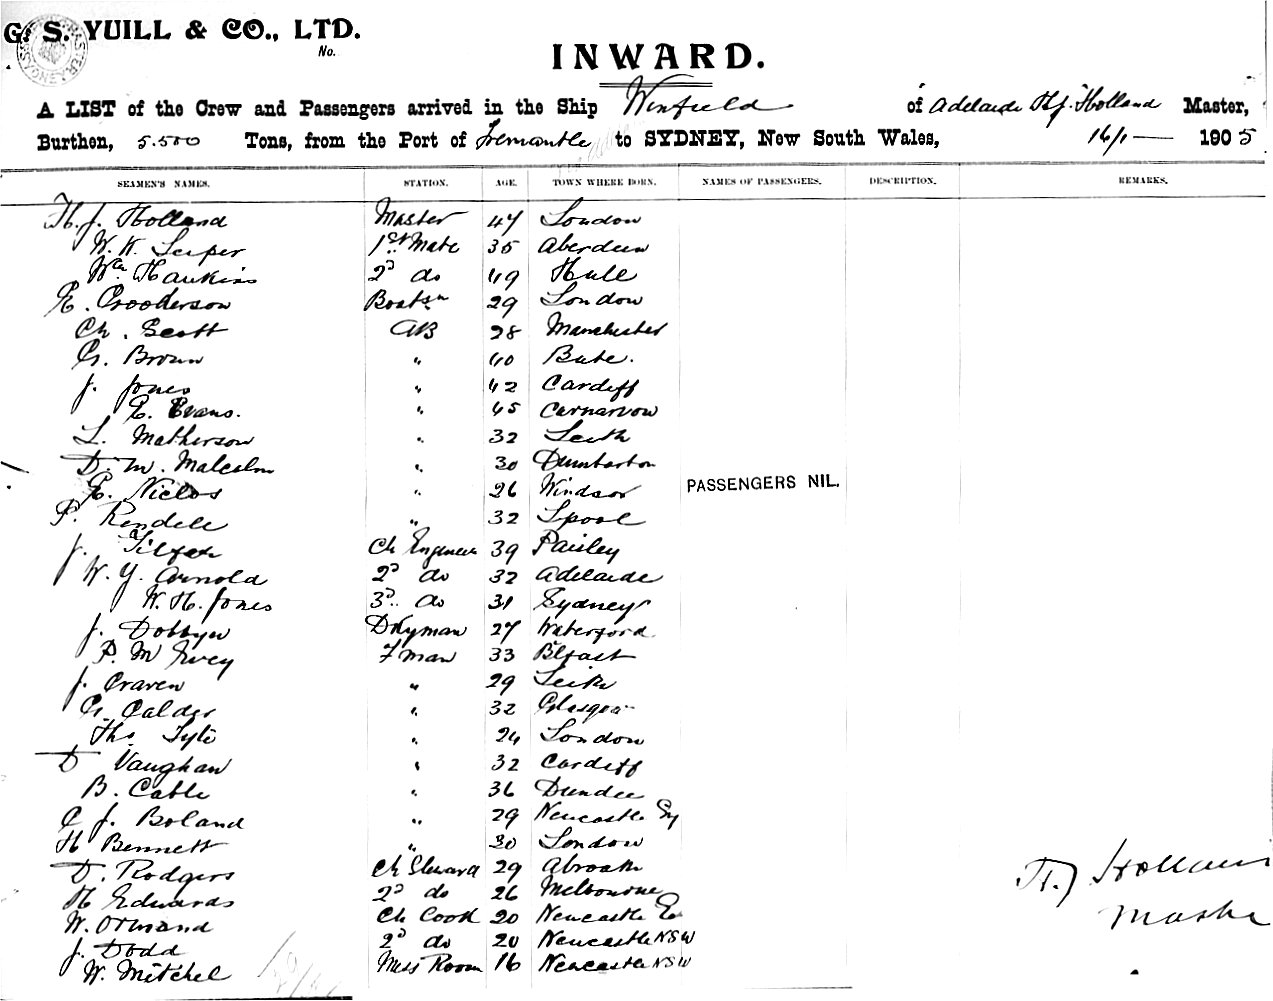 G. S. YUILL & CO., LTD.
No.
INWARD.
A LIST of the Crew and Passengers arrived in the Ship Winfield of Adelaide H. J. Holland Master,
Burthen, 5.500 Tons, from the Port of Fremantle to SYDNEY, New South Wales, 16/1 — 1905
SEAMEN'S NAMES. STATION. AGE. TOWN WHERE BORN. NAMES OF PASSENGERS. DESCRIPTION. REMARKS.
H. J. Holland Master 47 London
W. K. Leiper 1st Mate 35 Aberdeen
Wm Hawkins 2d do 49 Hull
E. Crookerson Boatsn 29 London
Ch. Scott AB 28 Manchester
G. Brown " 40 Bute.
J. Jones " 42 Cardiff
E. Evans. " 45 Carnarvon
L. Matherson " 32 Leith
D. M. Malcolm " 30 Dumbarton
E. Niclos " 26 Windsor
PASSENGERS NIL.
P. Rendell " 32 Lpool
J. Ch Engineer 39 Paisley
W. Y. Arnold 2d do 32 Adelaide
W. H. Jones 3d do 31 Sydney
J. Dobbyn Dkyman 27 Waterford
P. McEvey F man 33 Blfast
J. Craven " 29 Leith
G. Calder " 32 Glasgow
Ths Tyle " 24 London
D Vaughan " 32 Cardiff
B. Cable " 36 Dundee
C J. Boland " 29 Newcastle Eng
H Bennett " 30 London
D. Rodgers Ch Steward 29 Abroath
H Edwards 2d do 26 Melbourne
W. Ormand Ch Cook 20 Newcastle En
J. Dodd 2d do 20 Newcastle NSW
W. Mitchel Mess Room 16 Newcastle NSW
H. J Holland
Master